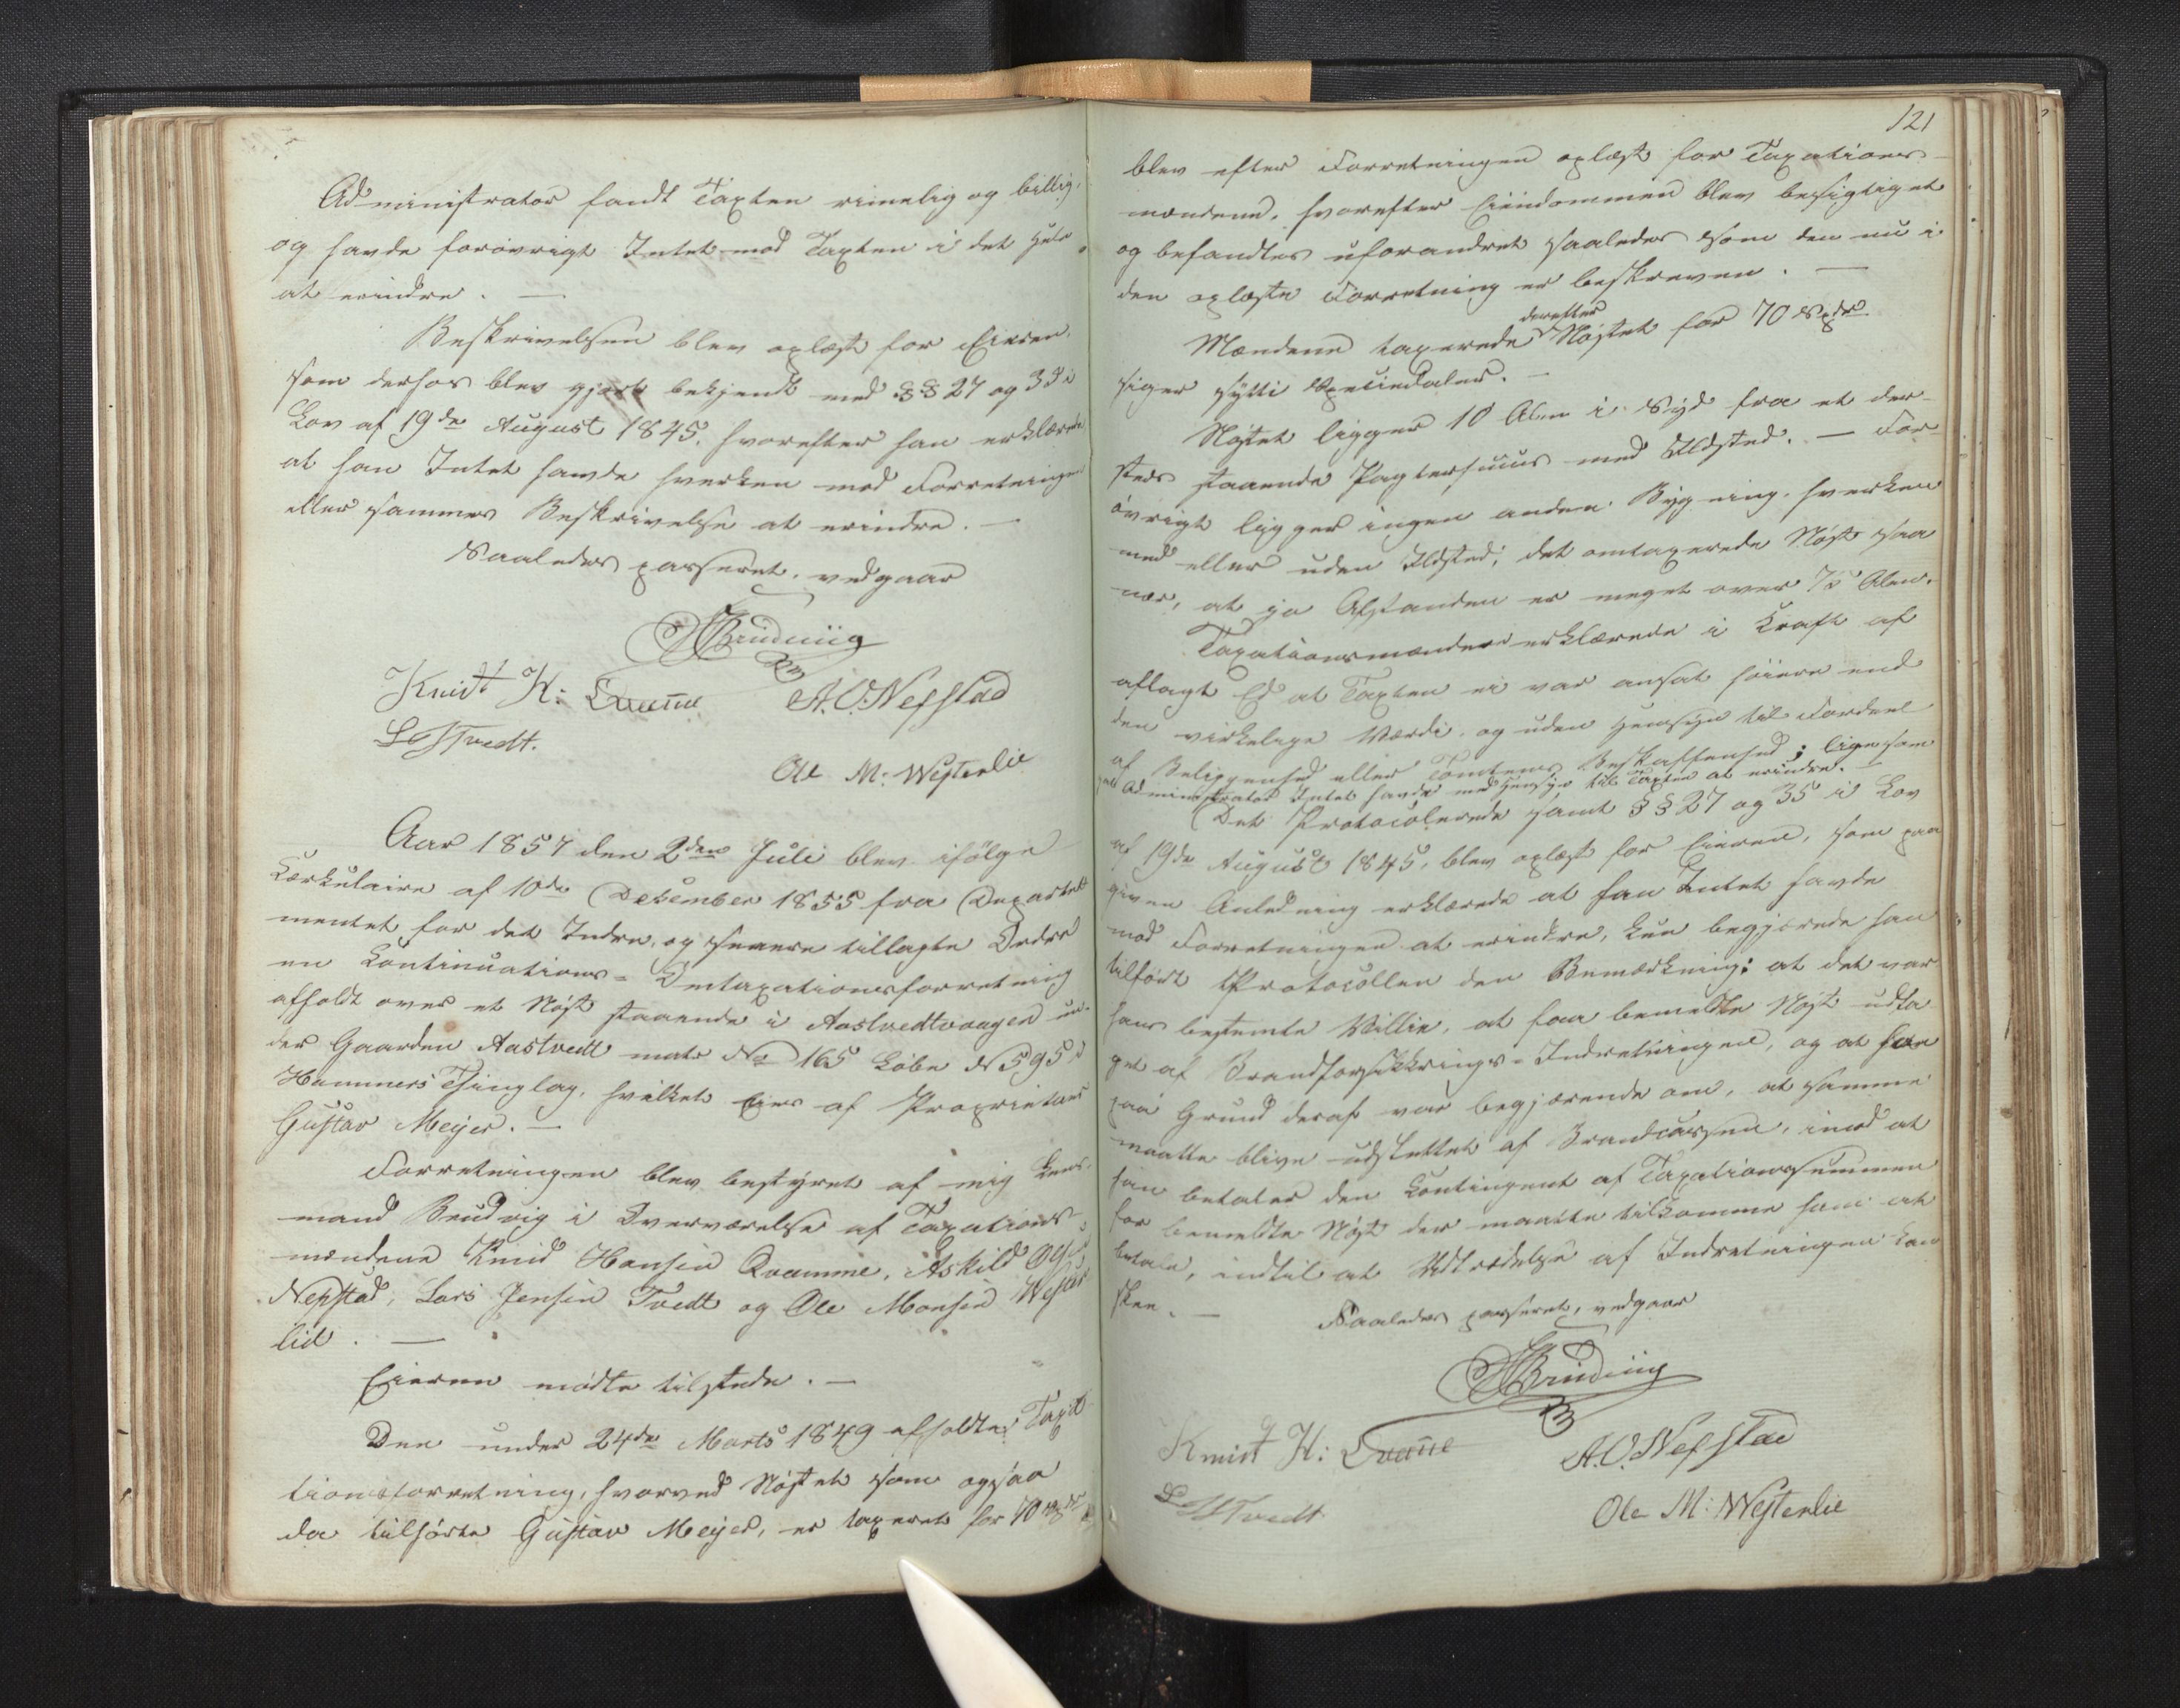 Administrator fandt Taxten rimelig og billig,
og havde forøvrigt Intet mod Taxten i det Hele
at erindre. —
Beskrivelsen blev oplæst for Eieren,
som derhos blev gjort bekjendt med §§ 27 og 35 i
Lov af 19de August 1845, hvorefter han erklærede
at han Intet havde hverken mod Forretningen
eller sammes Beskrivelse at erindre. —
Saaledes passeret, vedgaar
Brudvig
Knut K: Qvame A. O. Nepstad
L J Tvedt.
Ole M: Westerlie
Aar 1857 den 2den Juli blev ifølge
Cirkulaire af 10de Desember 1855 fra Departe
mentet for det Indre, og senere tillagte Ordre
en Continuations- Omtaxationsforretning
afholdt over et Nøst staaende i Aastvedtvaagen un-
der Gaarden Aastvedt matr No 165 Løbe N 595,
Hammers Thinglag, hvilket eies af Proprietær
Gustav Meyer. —
Forretningen blev bestyret af mig Lens-
mand Brudvig i Overværelse af Taxations-
mændene Knud Hansen Qvamme, Askild
Nepstad, Lars Jensen Tvedt og Ole Monsen Wester
lid. —
Eieren mødte tilstede. —
Den under 24de Marts 1849 afholdte Taxa
tionsforretning, hvorved Nøstet som ogsaa
da tilhørte Gustav Meyer, er taxeret for 70
121
blev efter Forretningen oplæst for Taxations-
mændene, hvorefter Eiendommen blev besigtiget
og befandtes uforandret saaledes som den nu i
den oplæste Forretning er beskreven. —
derefter
Mændene taxerede Nøstet for 70 Spdr
siger sytti Speciedaler. —
Nøstet ligger 10 Alen i Syd fra et der-
steds staaende Pagterhuus med Ildsted. — For-
øvrigt ligger ingen anden Bygning, hverken
med eller uden Ildsted, det omtaxerede Nøst saa
nær, at jo Afstanden er meget over Alen.
Taxationsmændene erklærede i Kraft af
aflagt Ed at Taxten ei var ansat høiere end
den virkelige Værdi, og uden Hensyn til Fordeel
af Beliggenhed eller Tomtens Beskaffenhed; ligesom
Administrator Intet havde med Hensyn til Taxten at erindre. —
Det Protocolerede samt §§ 27 og 35 i Lov
af 19de August 1845, blev oplæst for Eieren, som paa
given Anledning erklærede at han Intet havde
mod Forretningen at erindre, kun begjærede han
tilført Protocollen den Bemærkning: at det var
hans bestemte Villie, at faa bemeldte Nøst udta
get af Brandforsikkrings-Indretningen, og at han
paa Grund deraf var begjærende om, at samme
maatte blive udslettet af Brandcassen, imod at
han betaler den Contingent af Taxationssummen
for bemeldte Nøst der maatte tilkomme ham at
betale, indtil at Udtrædelse af Indretningen kan
skee. —
Saaledes passeret, vedgaar
Brudvig
Knut K: Qvame A. O. Nepstad
L J Tvedt
Ole M: Westerlie